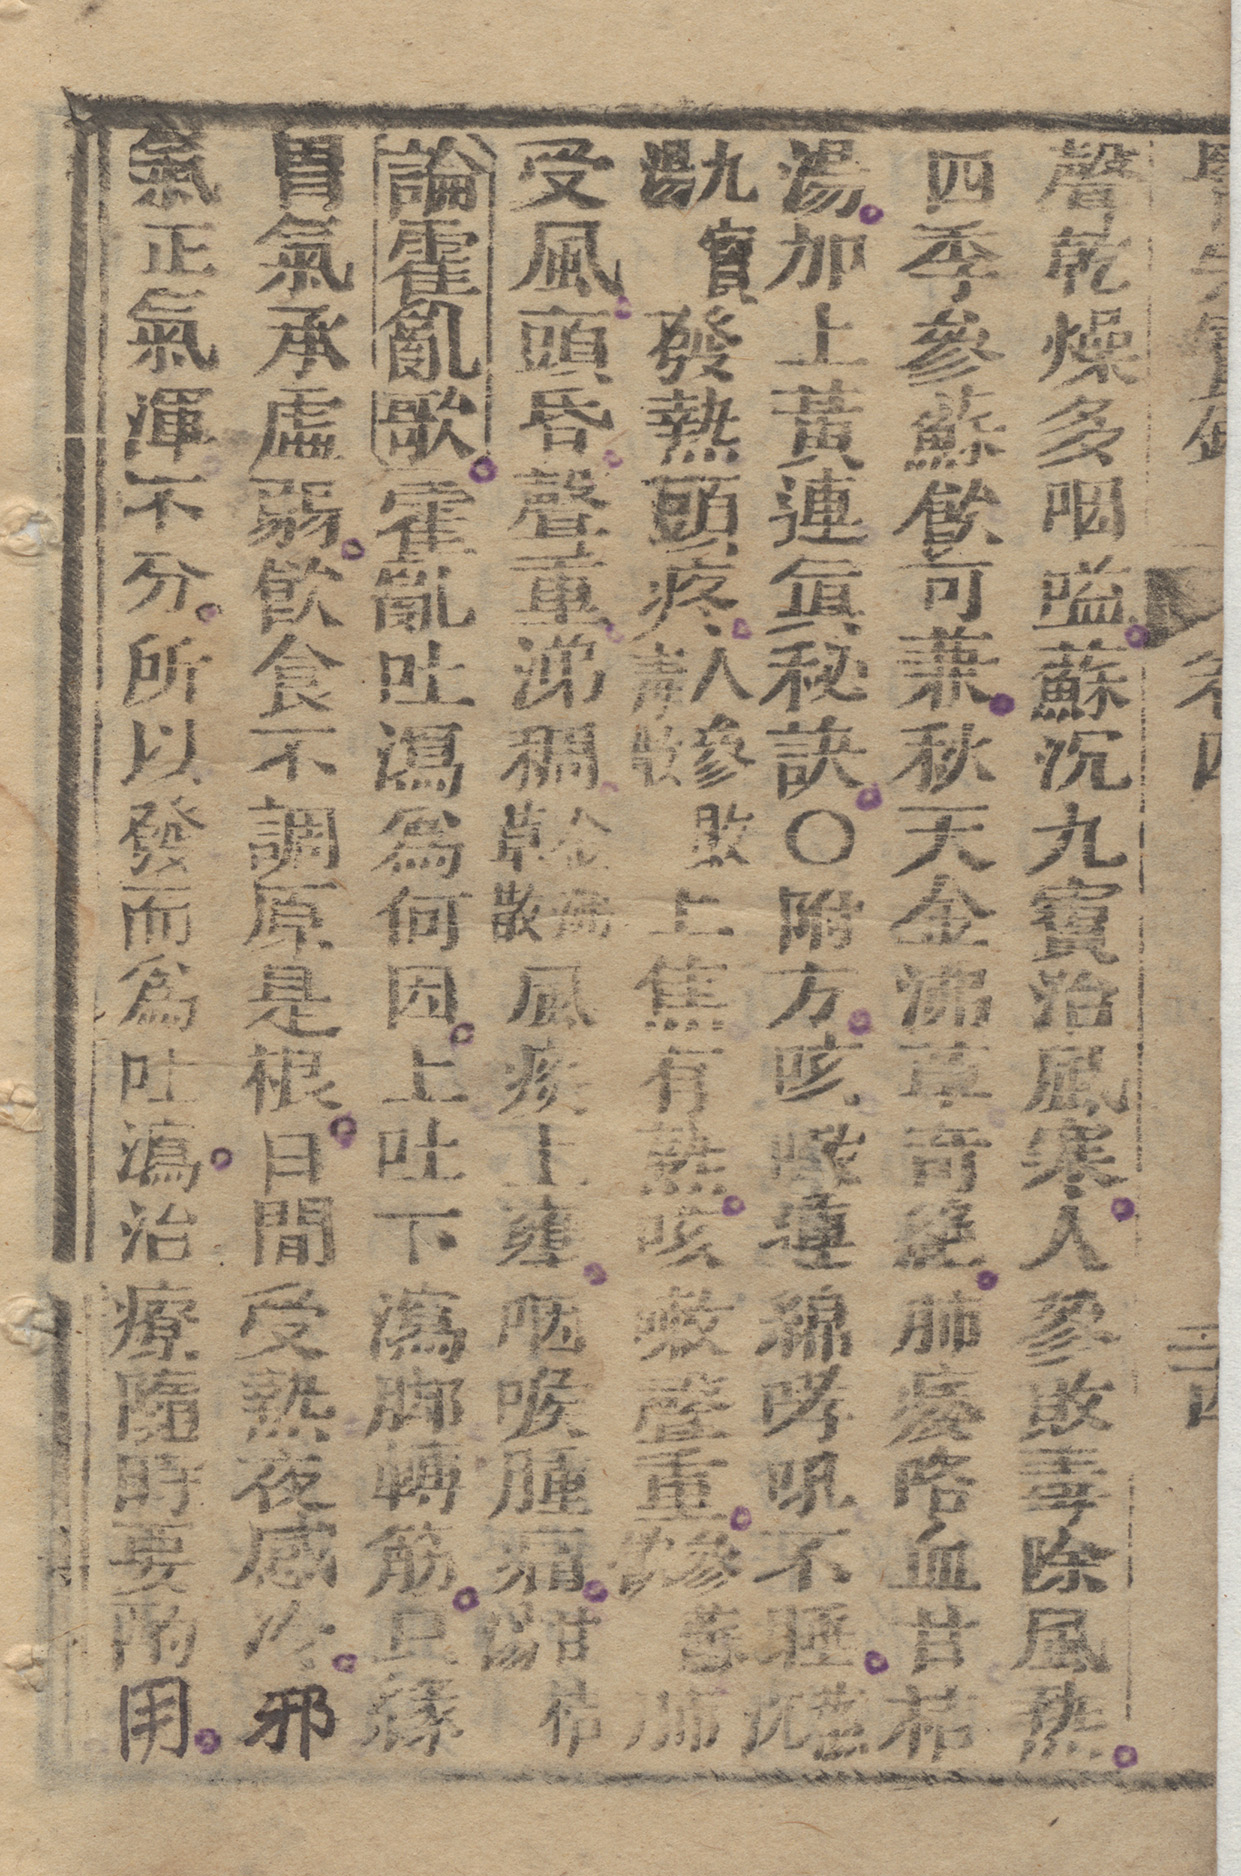 卷四
聲乾燥多咽嗌蘇沉九寶治風寒人參敗毒除風热
四季參蘇飲可兼秋天金沸草奇絶肺痿咯血甘桔
湯加上黃連眞秘訣〇附方咳嗽痰綿哮吼不睡
九寶湯發熱頭疼人參敗毒散上焦有熱咳嗽聲重參蘇飲肺
受風頭昏聲重涕稠金沸草散風痰上壅咽喉腫痛甘桔湯
論霍亂歌霍亂吐瀉爲何因上吐下瀉脚轉筋只緣
胃氣承虛弱飲食不調原是根日間受熱夜感冷邪
氣正氣渾不分所以發而爲吐瀉治療隨時要酌用